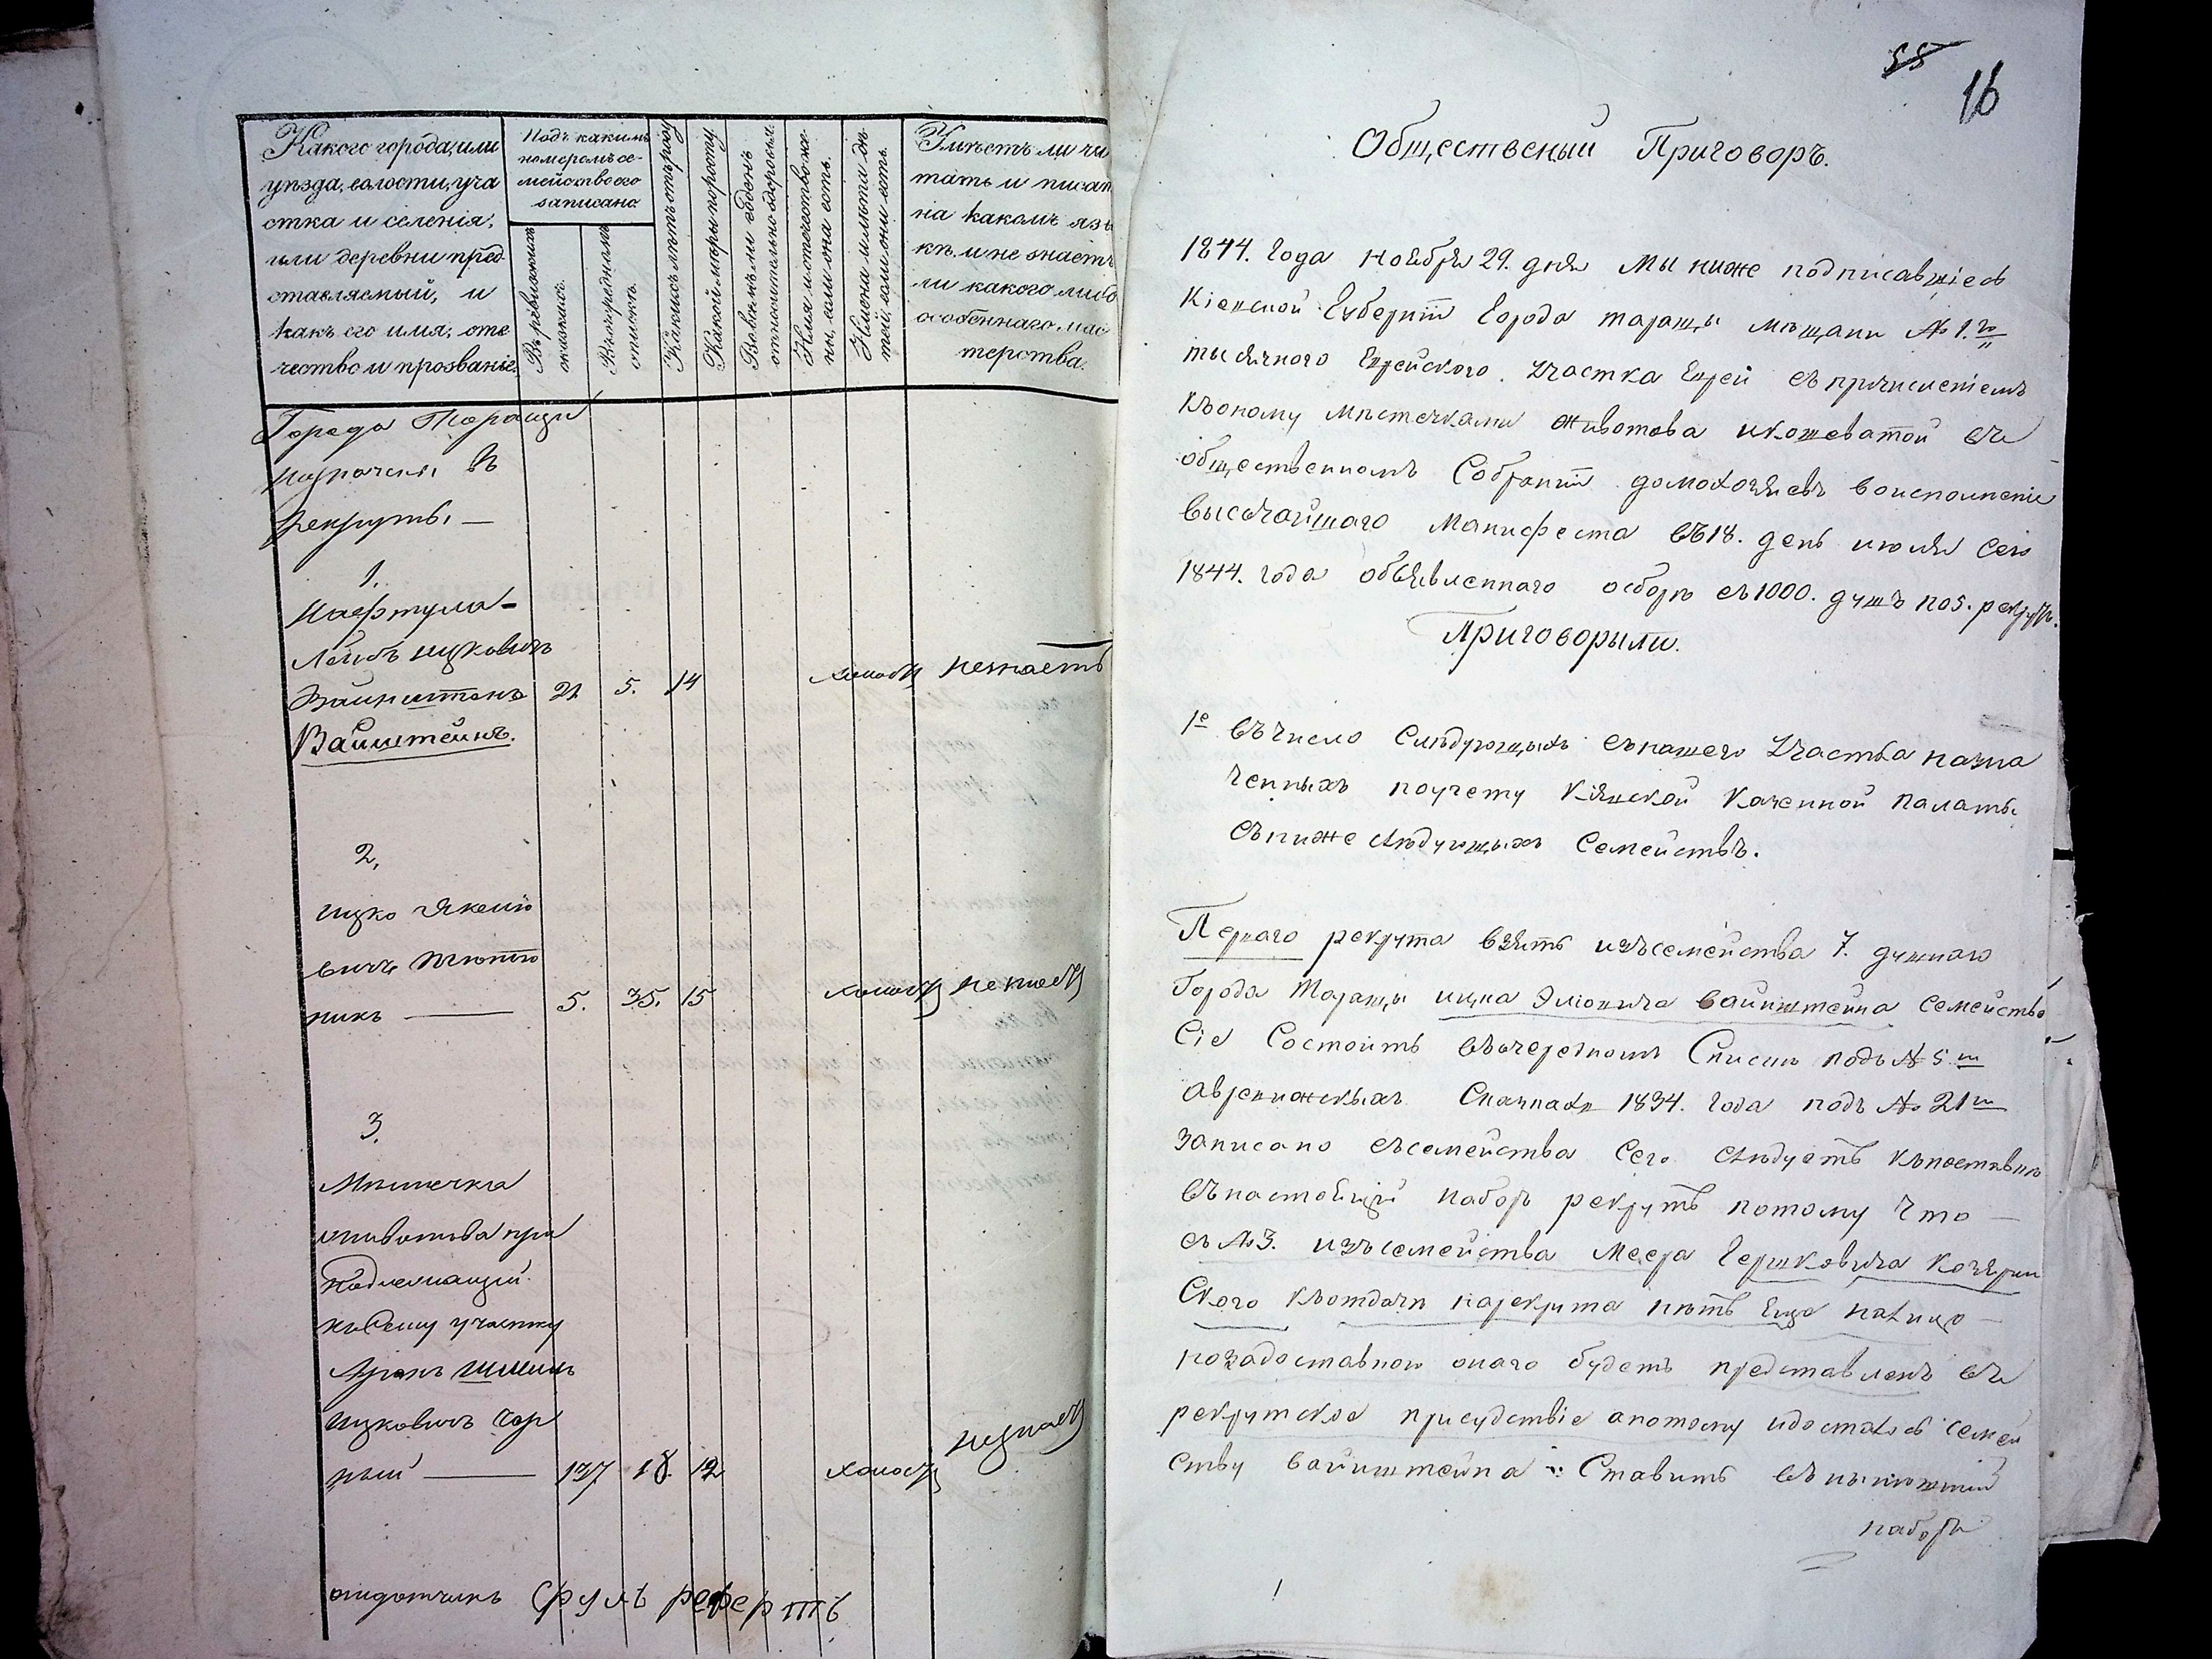 Какого города, или
уѣзда, волости, уча
стка и селенія,
или деревни пред
ставляемый, и
какъ его имя, оте
чество и прозваніе.
Подъ какимъ
номеромъ се-
мейство его
записано
Въ ревизскихъ
сказкахъ.
Въ очередномъ
спискѣ.
Какихъ лѣтъ отъ роду
Какой мѣры по росту.
относительно здоровья.
Имя и отечество же-
ны, если она есть.
Имена и лѣта дѣ
тей, если они есть.
Умѣетъ ли чи
тать и писат
на какомъ язы
кѣ, и не знаетъ
ли какого либо
особеннаго мас
терства.
Города Таращи
назначены въ
рекруты —
1.
Нафтула-
Лейбъ Ицковичъ
Вайнштенъ 21 5. 14 холостъ незнаетъ
Вайнштейнъ.
2,
Ицко
вичъ
никъ — 5. 35. 15 холостъ незнаетъ
3.
Мѣстечка
животова при
надлежащій
къ сему участку
Аронъ Шмиль
Ицковичъ Чор
ный — 137 18. 12 холостъ незнаетъ
отдатчикъ Сруль рефертъ
55
16
Общественый Приговоръ.
1844. года ноября 29. дня мы ниже подписавшіесь
Кіевской Губерніи города таращы мѣщани № 1.го
тысячного Еврейского участка Еврей съ причисленіемъ
къ оному мѣстечками животова и кошеватой въ
общественномъ Собраніи домохозяевъ во исполненіе
высочайшаго манифеста въ 18. день июля сего
1844. года объявленнаго о сборѣ съ 1000. душъ по 5. рекрутъ.
Приговорыли.
1е въ число Слѣдующыхъ съ нашего участка назна
ченныхъ по учету Кіевской Казенной палаты
съ ниже слѣдующыхъ Семействъ.
Перваго рекрута взять изъ семейства 7. душнаго
города Таращы ицка Элювича вайнштейна семейство
Сіе Состоитъ въ очередномъ Списке подъ № 5.м
а в ревижскыхъ Сказкахъ 1834. года подъ № 21м
записано съ семейства Сего слѣдуетъ къ поставке
въ настоящій наборъ рекрутъ потому что —
съ № 3. изъ семейства Меера Гершковича
Ского къ отдачи на рекрута нѣтъ Еще налицо —
по задоставкою онаго будетъ представленъ въ
рекрутское присудствіе а потому и досталось Семей
ству вайнштейна Ставить въ нынѣшній
наборъ